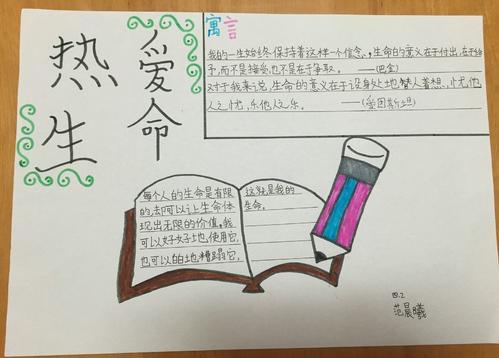 热爱生命
寓言
我的一生始终保持着这样一个信念,生命的意义在于付出,在于给
予,而不是接受,也不是在于争取。 ——(巴金)
对于我来说,生命的意义在于设身处地替人着想,忧他
人之忧,乐他人之乐。 ——(爱因斯坦)
每个人的生命是有限
的,却可以让生命体
现出无限的价值。我
可以好好地使用它,
也可以白白地糟蹋它,
这就是我的
生命。
四.2
范晨曦